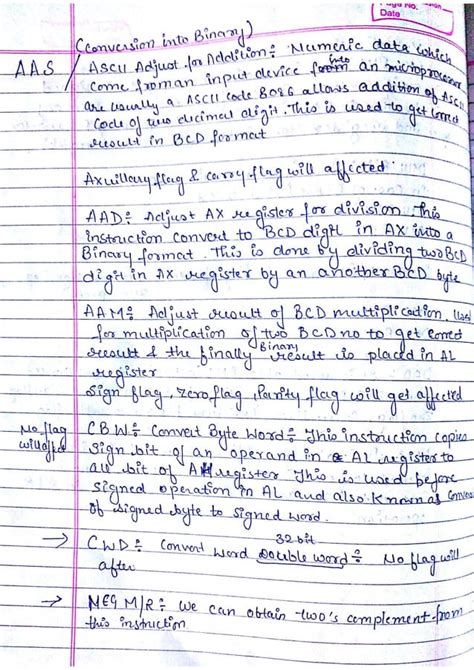 Page No.
Date
(Conversion into Binary)
AAS / ASCII Adjust for Addition ÷ Numeric data which
come from an input device into an microprocessor
are usually a ASCII code 8086 allows addition of ASCII
Code of two decimal digit. This is used to get correct
result in BCD format
Auxillary flag & carry flag will affected
AAD ÷ Adjust AX register for division This
instruction convert to BCD digit in AX into a
Binary format. This is done by dividing two BCD
digit in AX register by an another BCD byte
AAM ÷ Adjust result of BCD multiplication, Used
for multiplication of two BCD no to get correct
result & the finally Binary result is placed in AL
register
Sign flag, zero flag, Parity flag will get affected
No flag will affed
CBW ÷ Convert Byte Word ÷ This instruction copies
Sign bit of an operand in a AL register to
all bit of AH register This is used before
signed operation in AL and also Known as
of signed byte to signed word.
32 bit
→ CWD ÷ Convert word Double word ÷ No flag will
after
→ NEG M/R ÷ we can obtain two's complement from
this instruction